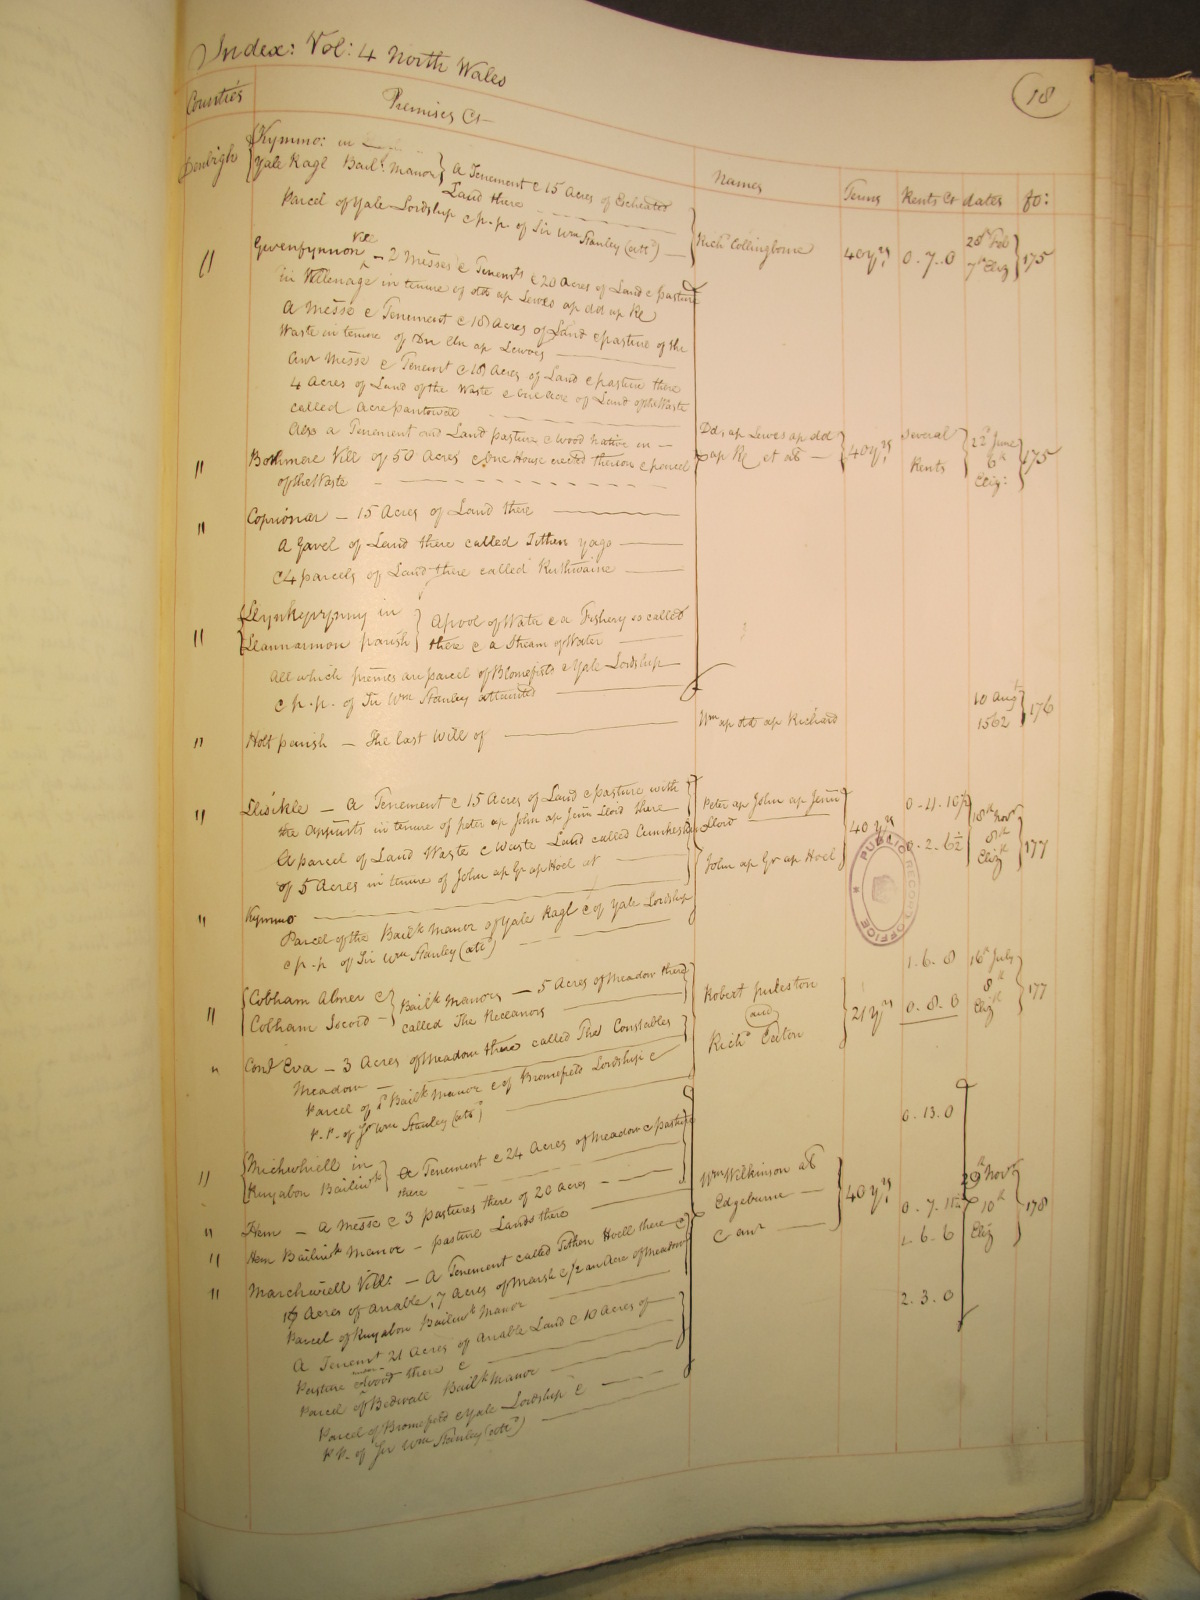 Index: Vol: 4 North Wales
18
Counties
Premises &c
Names
Terms
Rents &c
dates
fo:
Denbigh
Kymmo: in
Yale Ragl Bail: Manor } A Tenement & 15 Acres of Escheated
Land there
Parcel of Yale Lordship & p. p. of Sir Wm Stanley (attd)
Richd Collingborne
40 yrs
0. 7. 0
28th Feb
7th Eliz
175
" Gwenfynnon Vill - 2 Messes & Tenemts & 20 Acres of Land & pasture
in Villenage in tenure of dd ap Lewes ap dd ap Re
A Messe & Tenement & 18 Acres of Land & pasture of the
Waste in tenure of ap Lewes
Anr Messe & Tenemt & 18 Acres of Land & pasture there
4 Acres of Land of the Waste & one acre of Land of the Waste
called Acre pantowdd
Also a Tenement and Land pasture & Wood native in -
" Bothmere Vill of 50 Acres & one House erected thereon & parcel
of the Waste
Dd: ap Lewes ap dd
ap Re et als
40 yrs
Several
Rents
22d June
6th
Eliz:
175
" Coprionar - 15 Acres of Land there
A Gavel of Land there called Tithen yago
& 4 parcels of Land there called Ruthwaine
" Llynkyvynny in
Llannarmon parish } A pool of Water & a Fishery so called
there & a Stream of Water
All which premes are parcel of Bromefield & Yale Lordship
& p. p. of Sir Wm Stanley attainted
" Holt parish - The last Will of
Wm ap dd ap Richard
10 Augt
1562
176
" Llisikle - A Tenement & 15 Acres of Land & pasture with
the appurts in tenure of peter ap John ap Jenn Lloid there
A parcel of Land Waste & Waste Land called
of 5 Acres in tenure of John ap Gr ap Hoel at
Peter ap John ap Jenn
Lloid
John ap Gr ap Hoel
40 yrs
0. 4. 10½
0. 2. 6½
18th Novr
8th
Eliz
177
PUBLIC RECORD OFFICE
" Kymmo
Parcel of the Bailk Manor of Yale Ragl & of Yale Lordship
& p. p. of Sir Wm Stanley (attd)
" Cobham Almer &
Cobham Isecoed } Bailk Manors - 5 Acres of Meadow there
called The Receavors
Robert puleston
and
Richd Eaton
21 yrs
1. 6. 8
0. 8. 0
16th July
8th
Eliz
177
" Cond Eva - 3 Acres of Meadow there called The Constables
Meadow
Parcel of sd Bailk Manor & of Bromefield Lordship &
P. P. of Sr Wm Stanley (attd)
" Michwhiell in
Ruyabon Bailiwk } A Tenement & 24 Acres of Meadow & pasture
there
" Hem - A Messe & 3 pastures there of 20 Acres
" Hem Bailiwk Manor - pasture Lands there
Wm Wilkinson als
Edgeburne
& anr
40 yrs
0. 13. 0
0. 7. 1½
1. 6. 6
2. 3. 0
29th Novr
10th
Eliz
178
" Marchwiell Vill - A Tenement called Tithen Hoell there &
Acres of arrable, 7 Acres of Marsh & ½ an Acre of Meadow
Parcel of Ruyabon Bailiwk Manor
A Tenemt 21 Acres of Arrable Land & 10 Acres of
Pasture & Wood there &
Parcel of Bedwall Bailk Manor
Parcel of Bromefield & Yale Lordship &
P. P. of Sir Wm Stanley (attd)